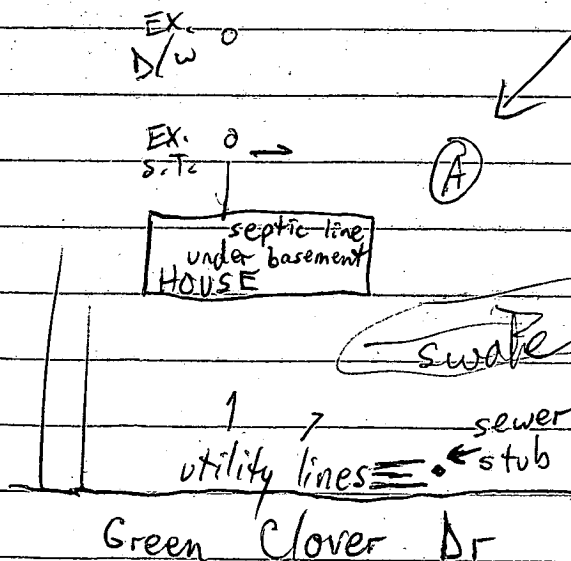 EX. O
D/W
EX. O
S.T.
A
septic line
under basement
HOUSE
swale
sewer
utility lines
stub
Green Clover Dr